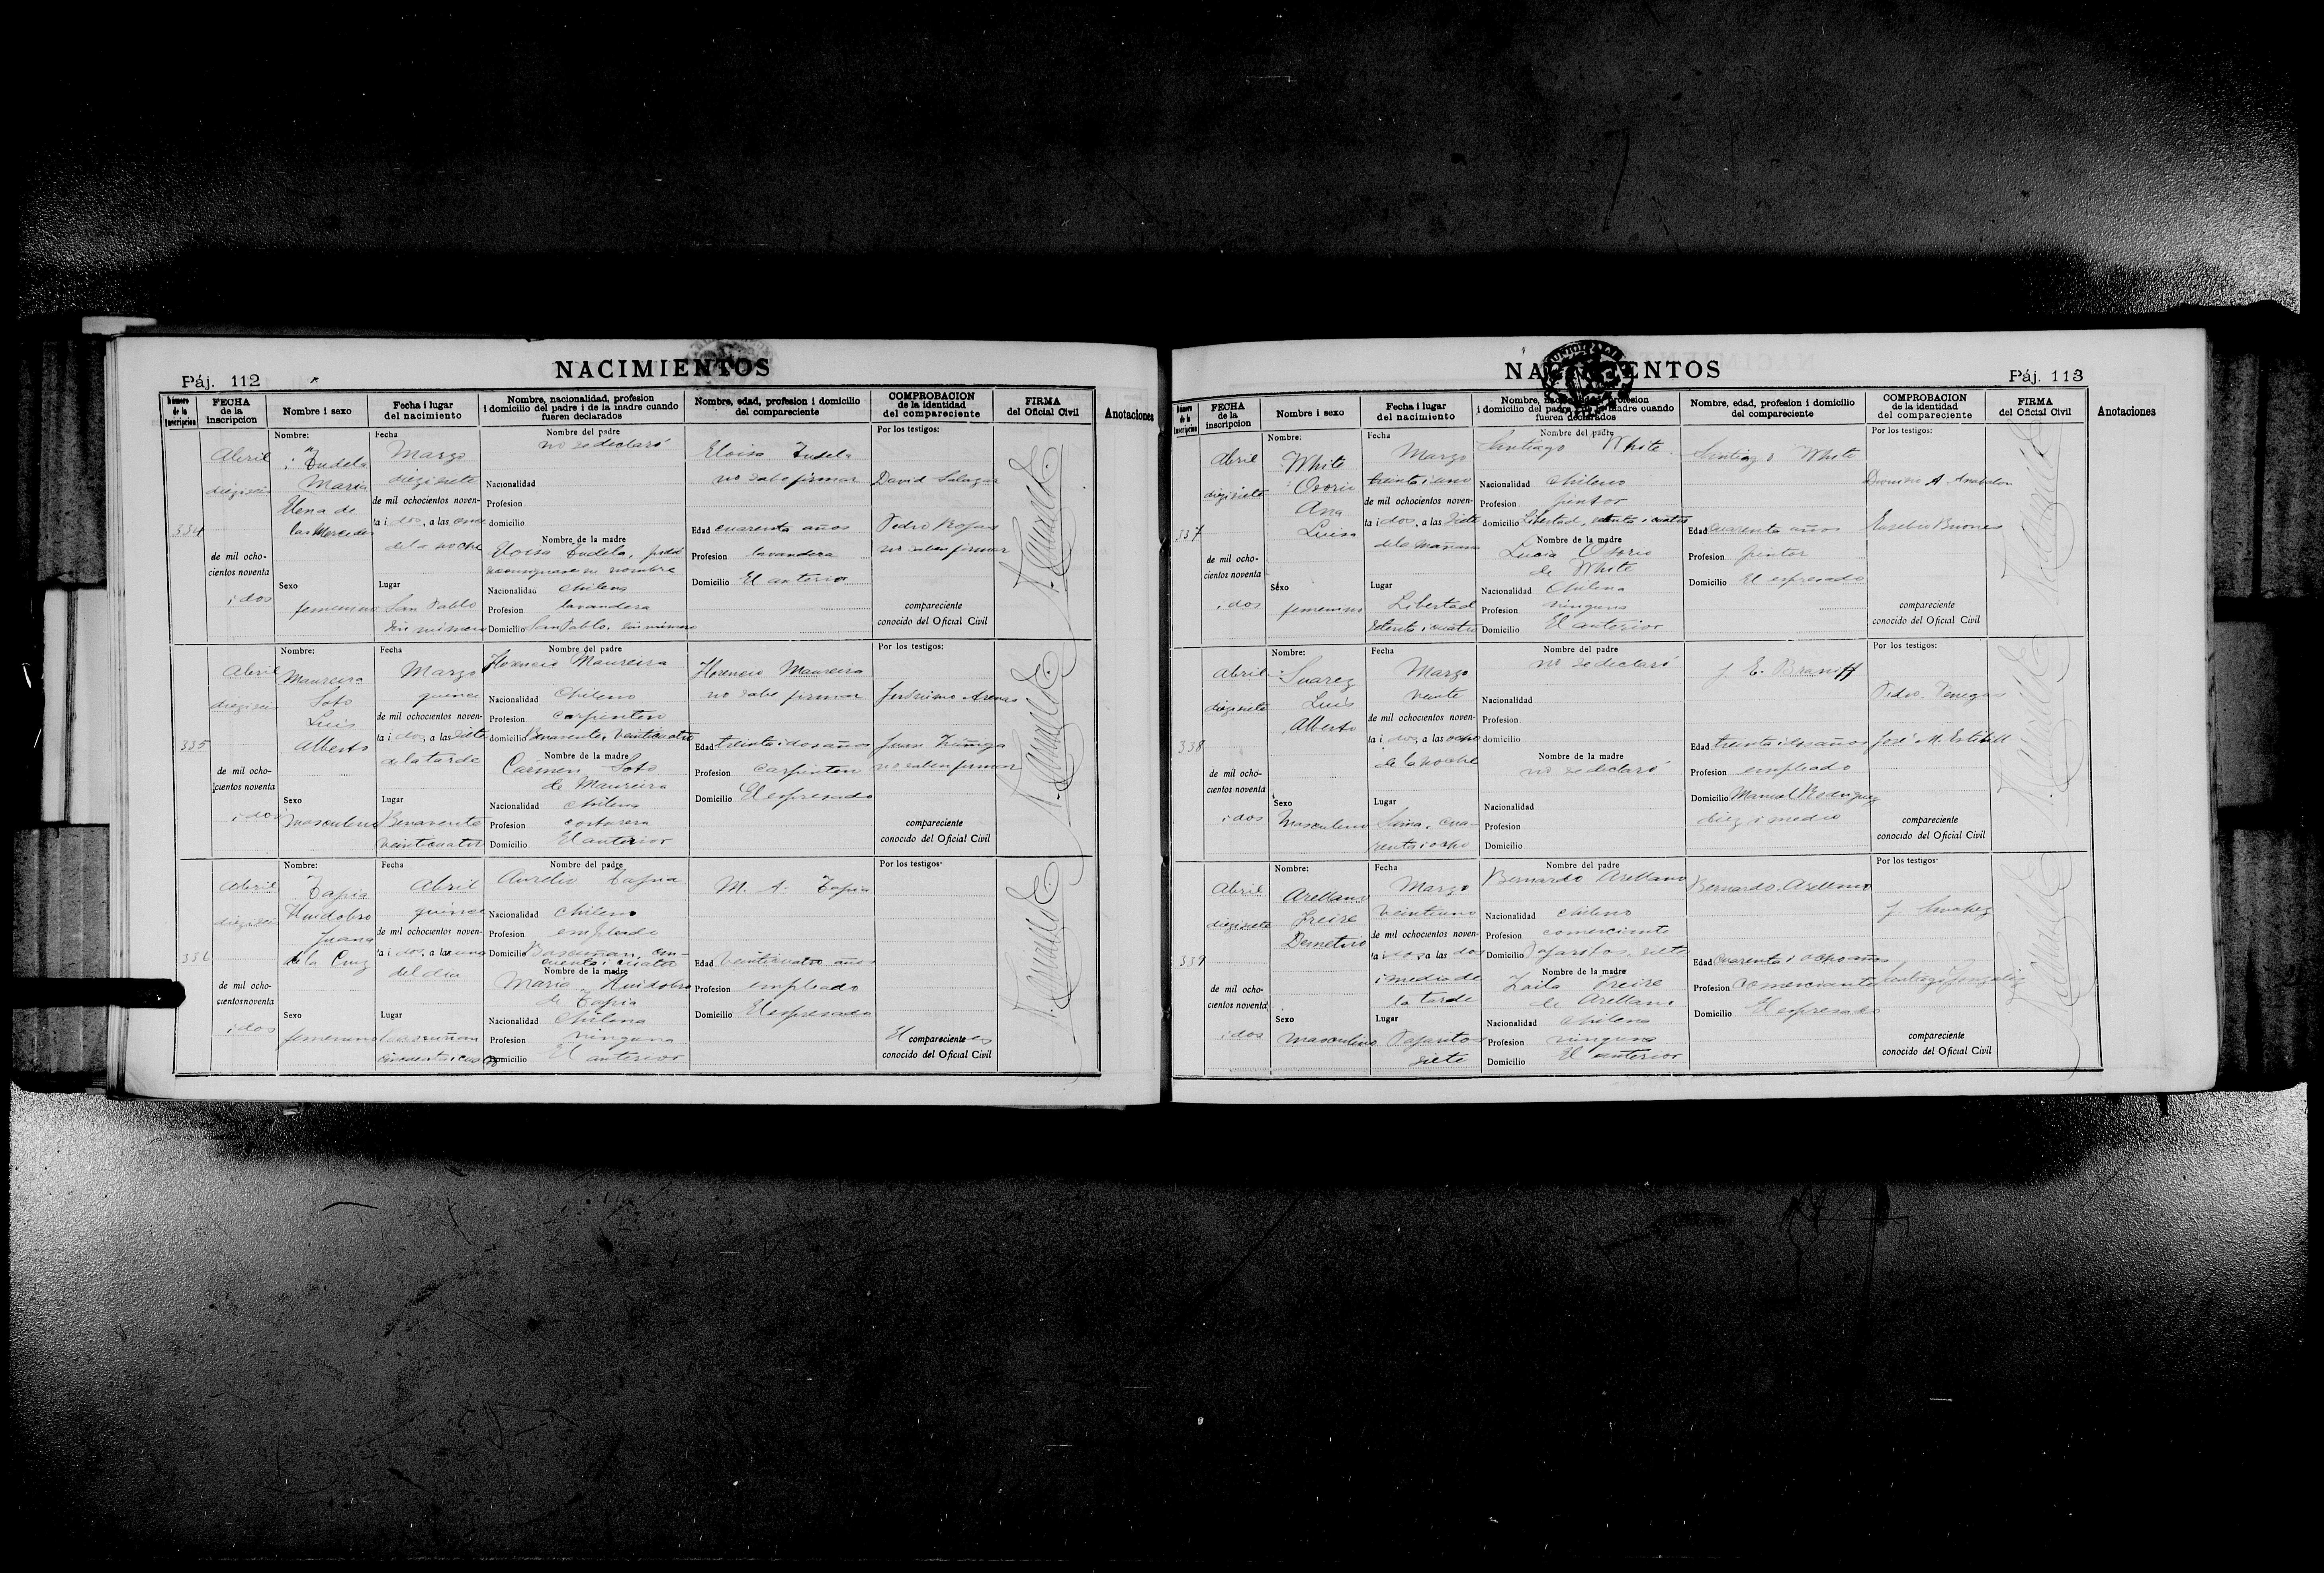 Páj. 112
NACIMIENTOS
Número de la inscripcion
FECHA de la inscripcion
Nombre i sexo
Fecha i lugar del nacimiento
Nombre, nacionalidad, profesion i domicilio del padre i de la madre cuando fueren declarados
Nombre, edad, profesion i domicilio del compareciente
COMPROBACION de la identidad del compareciente
FIRMA del Oficial Civil
Anotaciones
334
Abril
dieziseis
de mil ocho-
cientos noventa
i dos
Nombre:
Tudela
Maria
Elena de
las Mercedes
Sexo
femenino
Fecha
Marzo
diezisiete
de mil ochocientos noven-
ta i dos, a las once
de la noche
Lugar
San Pablo
sin número
Nombre del padre
no se declaró
Nacionalidad
Profesion
domicilio
Nombre de la madre
Eloisa Tudela, pidió
nombre
Nacionalidad Chilena
Profesion lavandera
Domicilio San Pablo, sin número
Eloisa Tudela
no sabe firmar
Edad cuarenta años
Profesion lavandera
Domicilio El anterior
Por los testigos:
David Salazar
Pedro Rojas
no saben firmar
compareciente
conocido del Oficial Civil
335
Abril
dieziseis
de mil ocho-
cientos noventa
i dos
Nombre:
Maureira
Soto
Luis
Alberto
Sexo
Masculino
Fecha
Marzo
quince
de mil ochocientos noven-
ta i dos, a las siete
de la tarde
Lugar
Benavente
veinticuatro
Nombre del padre
Florencio Maureira
Nacionalidad Chileno
Profesion carpintero
domicilio Benavente, veinticuatro
Nombre de la madre
Cármen Soto
de Maureira
Nacionalidad Chilena
Profesion costurera
Domicilio El anterior
Florencio Maureira
no sabe firmar
Edad treinta i dos años
Profesion carpintero
Domicilio El espresado
Por los testigos:
Jerónimo Arenas
Juan Zúñiga
no saben firmar
compareciente
conocido del Oficial Civil
336
Abril
dieziseis
de mil ocho-
cientos noventa
i dos
Nombre:
Tapia
Huidobro
Juana
de la Cruz
Sexo
femenino
Fecha
Abril
quince
de mil ochocientos noven-
ta i dos, a la una
del dia
Lugar
Bascuñan
cincuenta i cuatro
Nombre del padre
Aurelio Tapia
Nacionalidad Chileno
Profesion empleado
Domicilio Bascuñan, cin-
cuenta i cuatro
Nombre de la madre
Maria Huidobro
de Tapia
Nacionalidad Chilena
Profesion ninguna
Domicilio El anterior
M. A. Tapia
Edad veinticuatro años
Profesion empleado
Domicilio El espresado
Por los testigos:
El compareciente es
conocido del Oficial Civil
Páj. 113
NACIMIENTOS
Número de la inscripcion
FECHA de la inscripcion
Nombre i sexo
Fecha i lugar del nacimiento
Nombre, nacionalidad, profesion i domicilio del padre i de la madre cuando fueren declarados
Nombre, edad, profesion i domicilio del compareciente
COMPROBACION de la identidad del compareciente
FIRMA del Oficial Civil
Anotaciones
337
Abril
diezisiete
de mil ocho-
cientos noventa
i dos
Nombre:
White
Osorio
Ana
Luisa
Sexo
femenino
Fecha
Marzo
treinta i uno
de mil ochocientos noven-
ta i dos, a las siete
de la mañana
Lugar
Libertad
setenta i cuatro
Nombre del padre
Santiago White
Nacionalidad Chileno
Profesion pintor
domicilio Libertad, setenta i cuatro
Nombre de la madre
Lucia Osorio
de White
Nacionalidad Chilena
Profesion ninguna
Domicilio El anterior
Santiago White
Edad cuarenta años
Profesion pintor
Domicilio El espresado
Por los testigos:
Eusebio Briones
compareciente
conocido del Oficial Civil
338
Abril
diezisiete
de mil ocho-
cientos noventa
i dos
Nombre:
Suarez
Luis
Alberto
Sexo
Masculino
Fecha
Marzo
veinte
de mil ochocientos noven-
ta i dos, a las ocho
de la noche
Lugar
Sama, cua-
renta i ocho
Nombre del padre
no se declaró
Nacionalidad
Profesion
domicilio
Nombre de la madre
no se declaró
Nacionalidad
Profesion
Domicilio
J. E. Braniff
Edad treinta i dos años
Profesion empleado
Domicilio Manuel Rodriguez
diez i medio
Por los testigos:
Pedro Venegas
José M.
compareciente
conocido del Oficial Civil
339
Abril
diezisiete
de mil ocho-
cientos noventa
i dos
Nombre:
Arellano
Freire
Demetrio
Sexo
Masculino
Fecha
Marzo
veintiuno
de mil ochocientos noven-
ta i dos a las dos
i media de
la tarde
Lugar
Pajaritos
siete
Nombre del padre
Bernardo Arellano
Nacionalidad Chileno
Profesion comerciante
Domicilio Pajaritos, siete
Nombre de la madre
Zoila Freire
de Arellano
Nacionalidad Chilena
Profesion ninguna
Domicilio El anterior
Bernardo Arellano
Edad cuarenta i ocho años
Profesion Comerciante
Domicilio El espresado
Por los testigos:
J. Sanchez
Santiago Gonzalez
compareciente
conocido del Oficial Civil